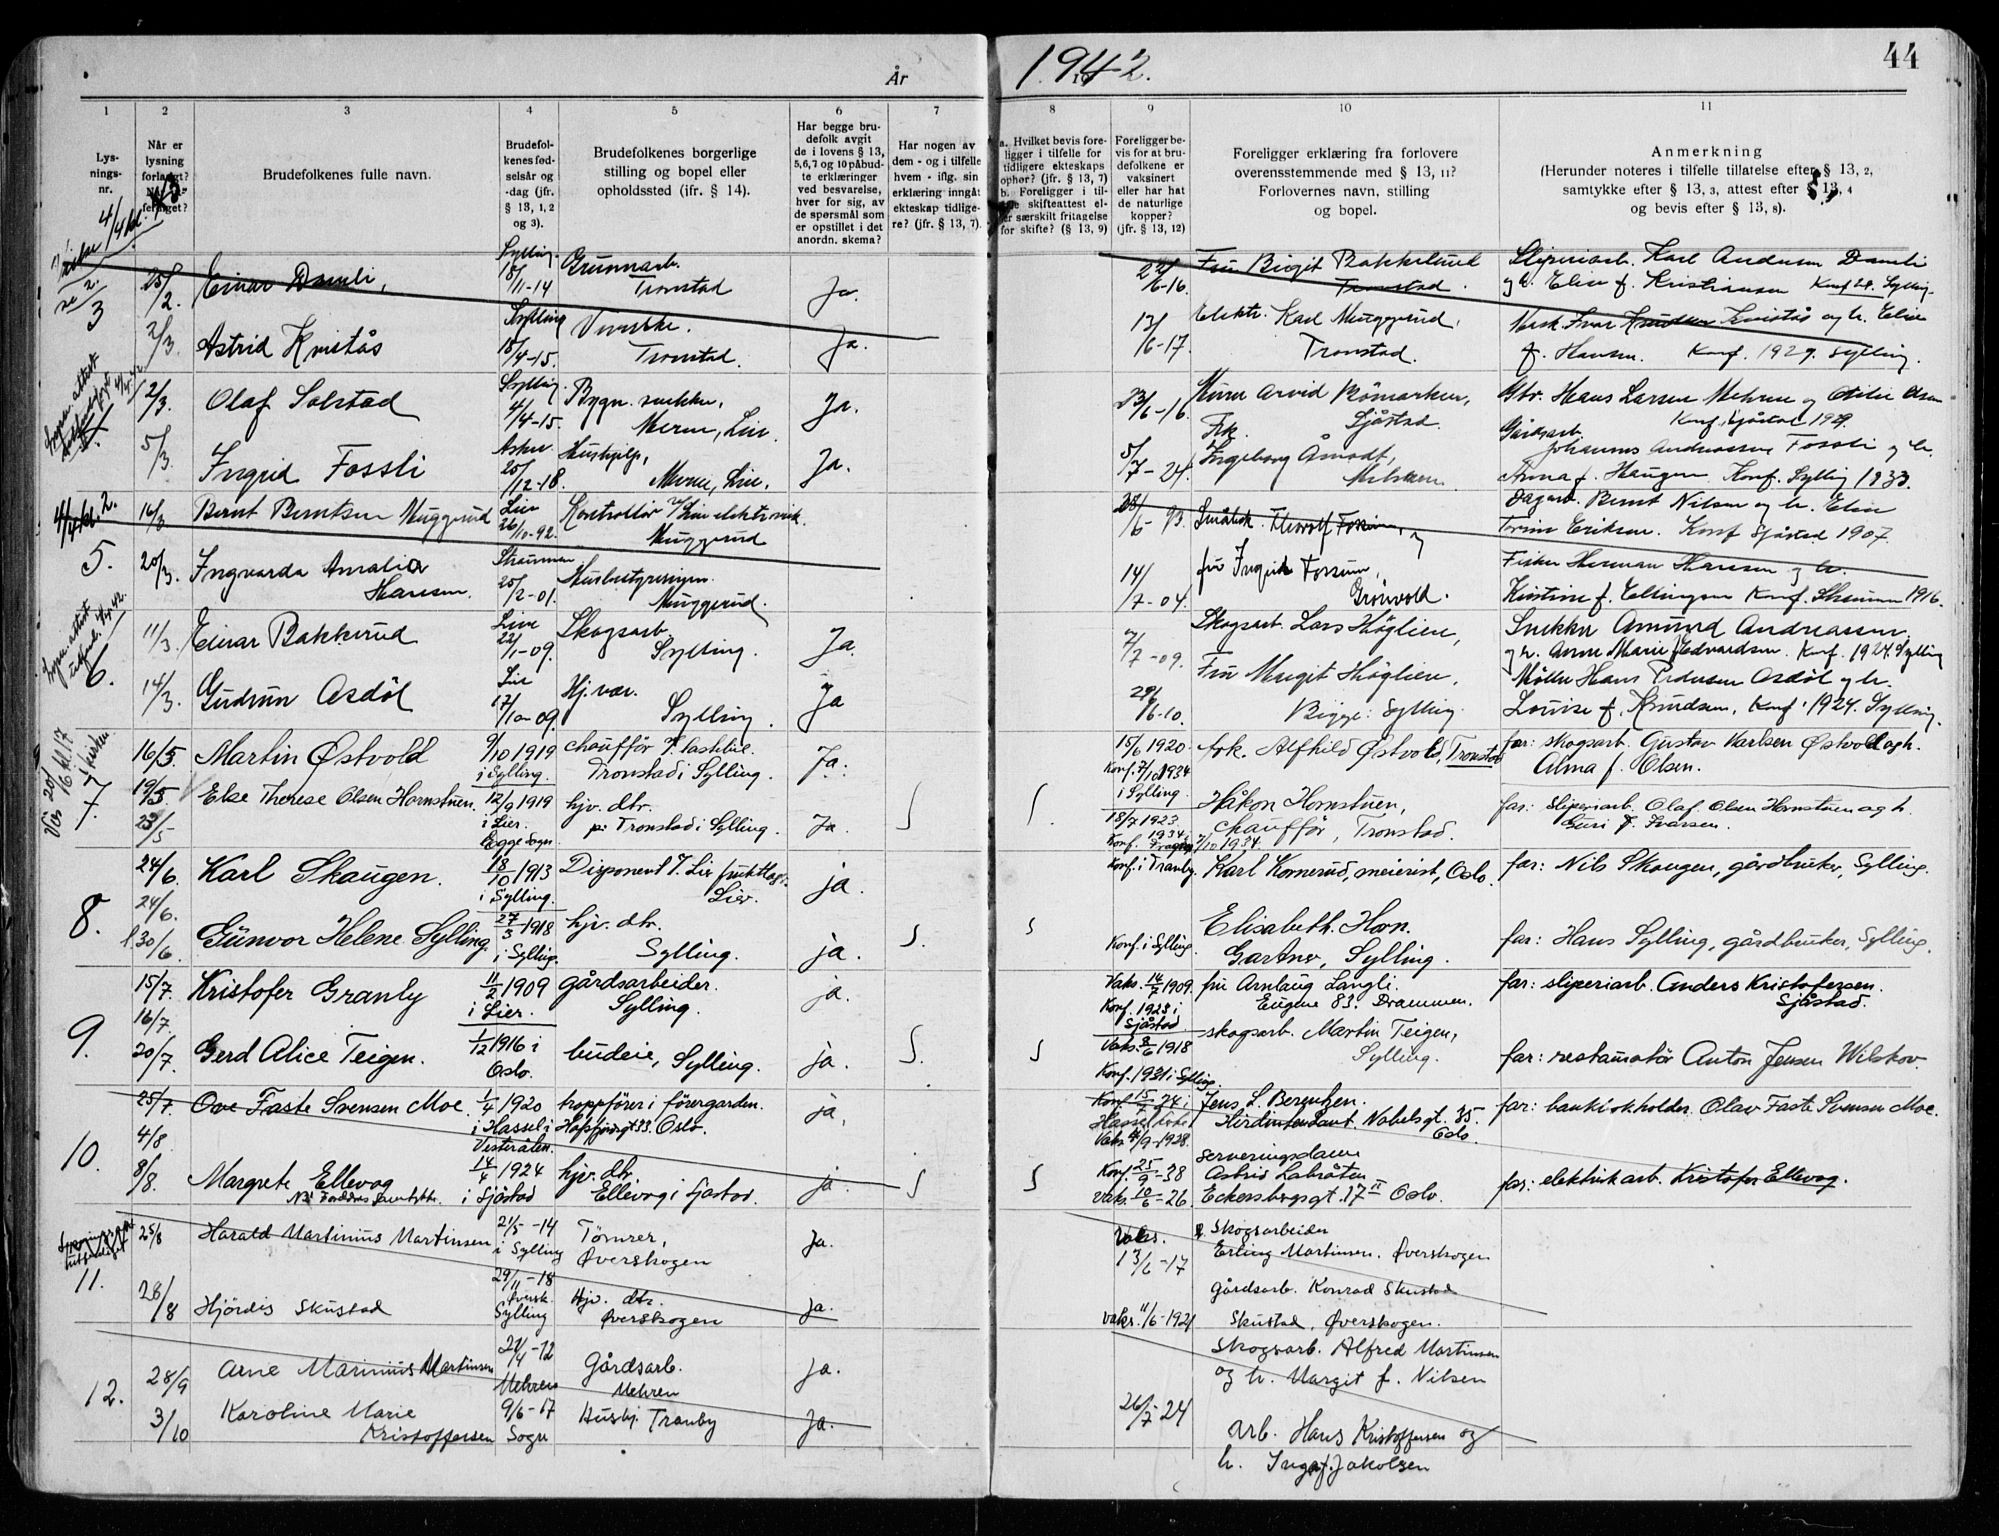 År 1942. 44
1 2 3 4 5 6 7 8 9 10 11
Lys-
nings-
nr.
Når er
lysning
forlangt?
Brudefolkenes fulle navn.
Brudefol-
kenes fød-
selsår og
-dag (jfr.
§ 13, 1, 2
og 3).
Brudefolkenes borgerlige
stilling og bopel eller
opholdssted (jfr. § 14).
Har begge bru-
defolk avgit
de i lovens § 13,
5,6,7 og 10 påbud-
te erklæringer
ved besvarelse,
hver for sig, av
de spørsmål som
er opstillet i det
anordn. skema?
Har nogen av
dem - og i tilfelle
hvem - iflg. sin
erklæring inngåt
ekteskap tidlige-
re? (jfr. § 13, 7).
a. Hvilket bevis fore-
ligger i tilfelle for
tidligere ekteskaps
ophør? (jfr. § 13, 7)
b. Foreligger i til-
felle skifteattest el-
ler særskilt fritagelse
for skifte? (§ 13, 9)
Foreligger be-
vis for at bru-
defolkene er
vaksinert
eller har hat
de naturlige
kopper?
(jfr. § 13, 12)
Foreligger erklæring fra forlovere
overensstemmende med § 13, 11?
Forlovernes navn, stilling
og bopel.
Anmerkning
(Herunder noteres i tilfelle tillatelse efter § 13, 2,
samtykke efter § 13, 3, attest efter § 13, 4
og bevis efter § 13, 8).
3
25/2. Einar Damli, Sylling 18/11-14 Grunnarb. Tronstad Ja. 22/6-16. Fru Birgit Bakkelund Tronstad. Sliperiarb. Karl Andersen Damli
og h. Elise f. Kristiansen Konf 28. Sylling.
2/3. Astrid Kvistås Sylling 18/4-15. Tronstad. Ja. 13/6-17. Elektr. Karl Muggerud, Tronstad. Ivar Kvistås og h. Elise
f. Hansen. Konf. 1929. Sylling.
2/3. Olaf Solstad Sylling 4/4-15. Bygn. snekker, Meren, Lier. Ja. 23/6-16. Murer Arvid Römarken, Sjåstad. Gbr. Hans Larsen Mehren og Otilie Olsen
Konf. Sjåstad 1929.
5/3. Ingrid Fossli Asker 25/12-18. Hushjelp, Meren, Lier. Ja. 5/7-24. Frk. Ingeborg Åmodt, Gårdsarb.
Johannes Andreassen Fossli og h.
Anna f. Haugen Konf. Sylling 1933.
4/4 kl. 2.
5.
16/3 Bernt Berntsen Muggerud Lier 26/10-92. Kontrollør v/ Lier elektr.verk. Muggerud 28/6-93. Småbr. Thorolf Fossum, og Dagarb. Bernt Nilsen og h. Eline
Eriksen. Konf Sjåstad 1907.
20/3. Ingvarda Amalia Hansen. Strømmen 25/2-01. Husbestyrerinne. Muggerud. 14/7-04. fru Ingrid Fossum, Grönvold. Fisker Herman Hansen og h.
Kristine f. Ellingsen Konf. Strømmen 1916.
6.
11/3. Einar Bakkerud Lier 22/1-09. Skogsarb. Sylling. Ja. 7/7-09. Skogsarb. Lars Höglien, Snekker Amund Andreassen
og h. Anne Marie f. Edvardsen. Konf. 1924. Sylling
14/3. Gudrun Asdöl Lier 17/10-09. Hj.vær. Sylling. Ja 29/6-10. Fru Margit Höglien, Bigge: Sylling Møller Hans Pedersen Asdöl og h.
Louise f. Knudsen, Konf. 1924. Sylling.
Vies 20/ kl 17 i kirken
7.
16/5. Martin Østvold 9/10 1919 i Sylling. chauffør f. lastebil. Tronstad i Sylling. Ja. 15/6 1920. Konf. 7/10 1934 i Sylling frk. Alfhild Østvold, Tronstad far: skogsarb. Gustav Karlsen Østvold og h.
Alma f. Olsen.
19/5 23/5 Else Therese Olsen Hornstuen. 12/9 1919 i Lier. Egge sogn hjv. dtr. p: Tronstad i Sylling. Ja. 18/7 1923. Konf. 1934 7/10 1934. Håkon Hornstuen, chauffør, Tronstad. far: sliperiarb. Olaf Olsen Hornstuen og h.
Guri f. Ivarsen.
8.
24/6. Karl Skaugen. 18/10 1913 i Sylling. Disponent f. Lier fruktlager. Lier. ja. Konf. i Tranby. Karl Kornerud, meierist, Oslo. far: Nils Skaugen, gårdbruker, Sylling.
24/6. l. 30/6 Gunvor Helene Sylling. 27/3 1918 i Sylling. hjv. dtr. Sylling. ja. Konf. i Sylling. Elisabeth Horn. Gartner, Sylling. far: Hans Sylling, gårdbruker, Sylling.
9.
15/7. Kristofer Granly 11/2 1909 i Lier. gårdsarbeider. Sylling. ja. Vaks. 14/7 1909. Konf. 1923 i Sjåstad fru Arnlaug Langli. Eugene 83. Drammen. far: sliperiarb. Anders Kristofersen.
Sjåstad.
16/7. 20/7. Gerd Alice Teigen. 1/12 1916 i Oslo. budeie, Sylling. ja. Vaks. 8/6 1918 Konf. 1931 i Sylling. skogsarb. Martin Teigen, Sylling. far: restauratør Anton Jensen Wilskov.
10.
25/7. Ove Faste Svensen Moe. 1/4 1920 i Hassel i Vesterålen. troppfører i førergarden. Oslo. ja, Vaks. 4/9-1928. Jens L. Berentzen. Hirdintendant. Nobelsgt. 35. Oslo. far: bankbokholder Olav Faste Svensen Moe.
4/8 8/8. Margrete Ellevog 14/4 1924 i Sjåstad hjv. dtr. Ellevog i Sjåstad. ja. Konf. 25/9-38 Vaks. 10/6-26. serveringsdame Astrid Labråten Eckersbergsgt. 17 II Oslo. far: elektrikarb. Kristofer Ellevog.
11.
25/8 Harald Martinius Martinsen 21/5-14 i Sylling Tömrer, Øverskogen Ja. Vaks. 13/6-17 Skogsarbeider Erling Martinsen. Øverskogen
28/8 Hjördis Skustad 29/11-18 Øversk. Sylling Hjv. dtr. Øverskogen Ja. vaks. 11/6-1921 Gårdsarb. Konrad Skustad Skustad, Øverskogen.
12.
28/9 Arne Marinius Martinsen 22/4-12 Mehren Gårdsarb. Mehren Ja. Skogsarb. Alfred Martinsen
og h. Margit f. Nilsen
3/10 Karoline Marie Kristoffersen 9/6-17 Sogn Hushj. Tranby Ja. 26/7-24 Arb. Hans Kristoffersen og
h. Inga f. Jakolsen